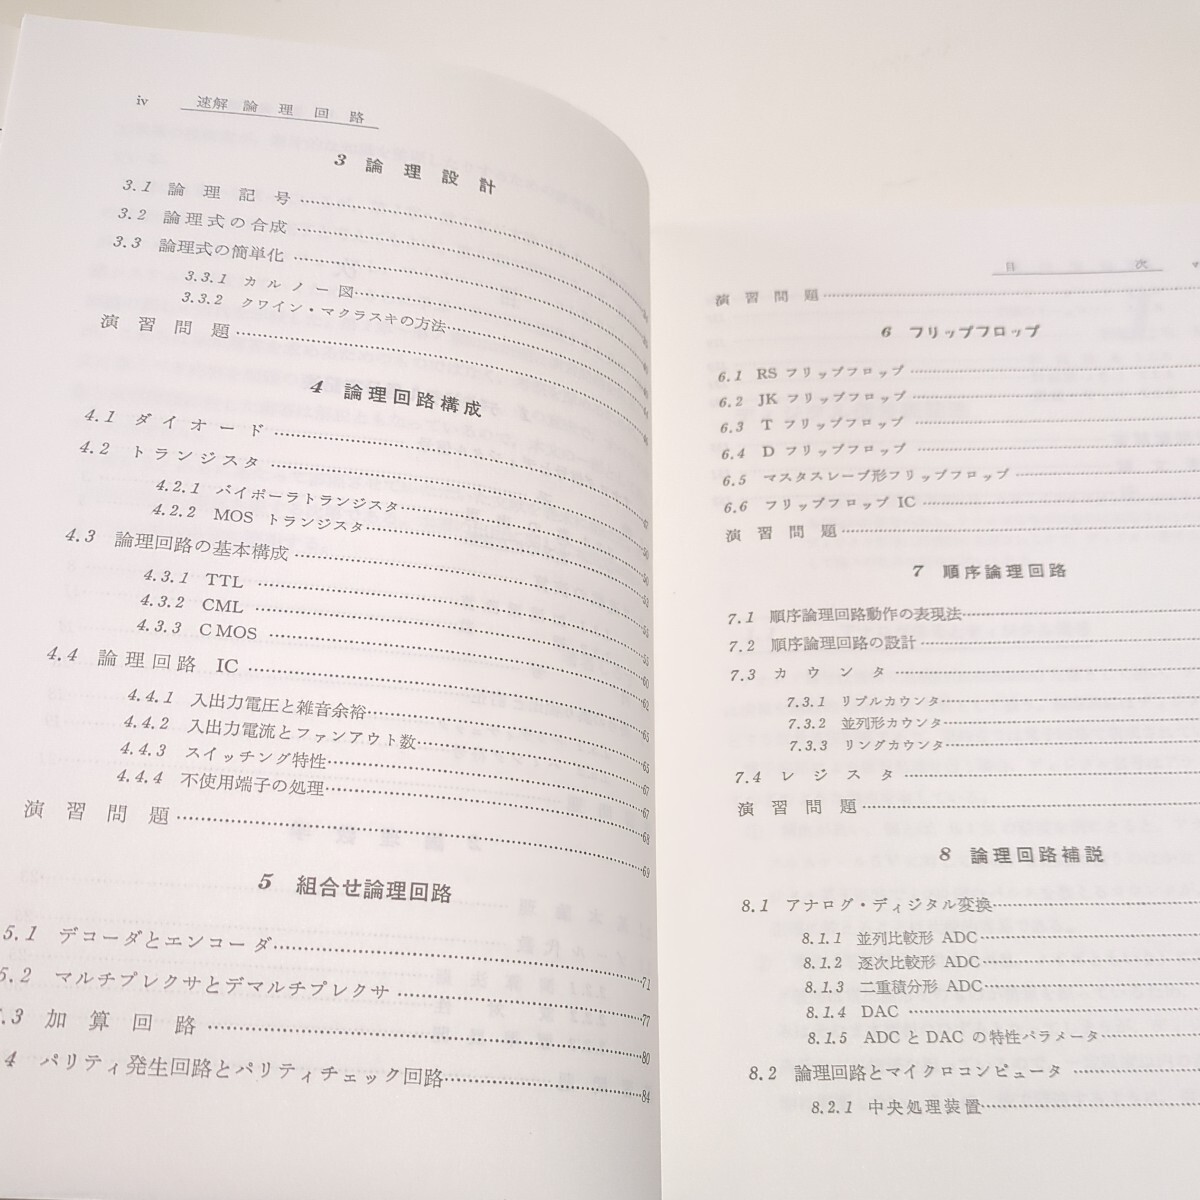 iv 速解 論理回路
3 論理設計
3.1 論理記号
3.2 論理式の合成
3.3 論理式の簡単化
3.3.1 カルノー図
3.3.2 クワイン・マクラスキの方法
演習問題
4 論理回路構成
4.1 ダイオード
4.2 トランジスタ
4.2.1 バイポーラトランジスタ 47
4.2.2 MOS トランジスタ 50
4.3 論理回路の基本構成 50
4.3.1 TTL
4.3.2 CML 55
4.3.3 CMOS
4.4 論理回路 IC
4.4.1 入出力電圧と雑音余裕 65
4.4.2 入出力電流とファンアウト数 65
4.4.3 スイッチング特性 67
4.4.4 不使用端子の処理 67
演習問題 69
5 組合せ論理回路
5.1 デコーダとエンコーダ 71
5.2 マルチプレクサとデマルチプレクサ 77
.3 加算回路 80
4 パリティ発生回路とパリティチェック回路 84
目次
演習問題
6 フリップフロップ
6.1 RS フリップフロップ
6.2 JK フリップフロップ
6.3 T フリップフロップ
6.4 D フリップフロップ
6.5 マスタスレーブ形フリップフロップ
6.6 フリップフロップ IC
演習問題
7 順序論理回路
7.1 順序論理回路動作の表現法
7.2 順序論理回路の設計
7.3 カウンタ
7.3.1 リプルカウンタ
7.3.2 並列形カウンタ
7.3.3 リングカウンタ
7.4 レジスタ
演習問題
8 論理回路補説
8.1 アナログ・ディジタル変換
8.1.1 並列比較形 ADC
8.1.2 逐次比較形 ADC
8.1.3 二重積分形 ADC
8.1.4 DAC
8.1.5 ADC と DAC の特性パラメータ
8.2 論理回路とマイクロコンピュータ
8.2.1 中央処理装置